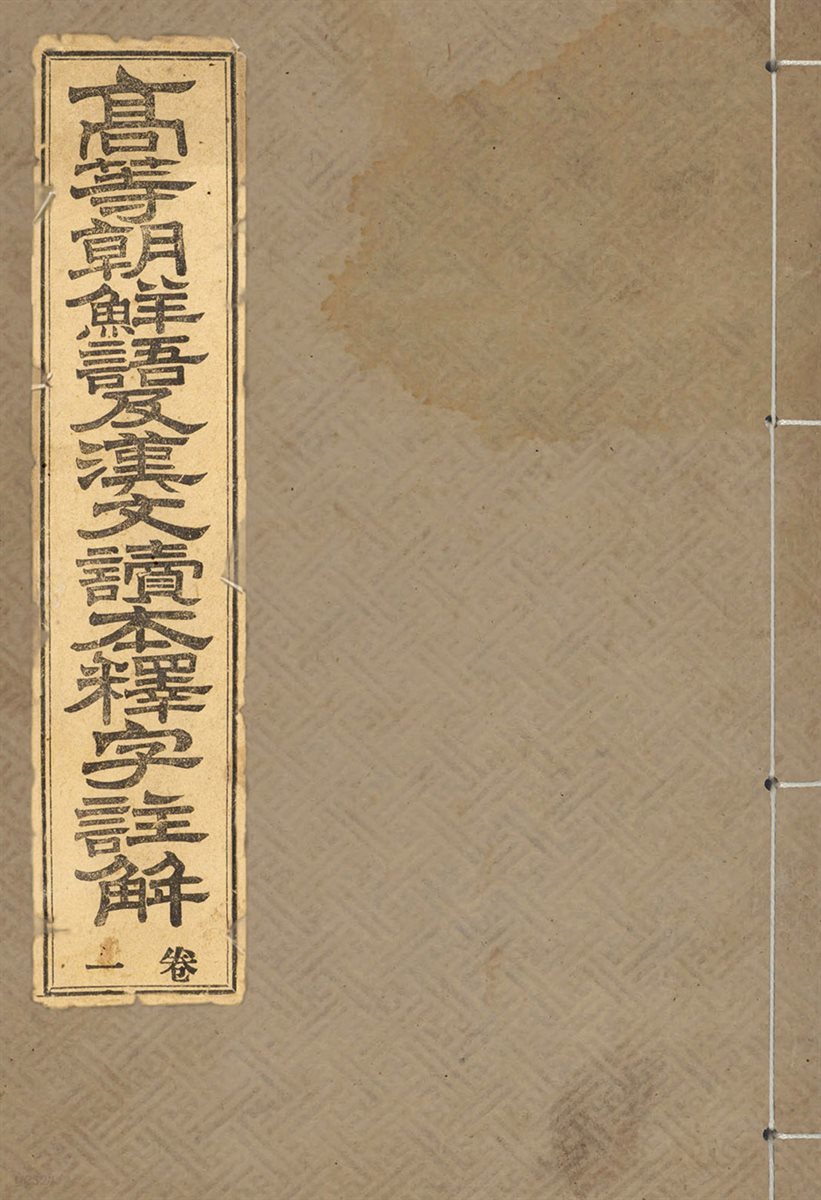 高等朝鮮語及漢文讀本釋字註解
卷一